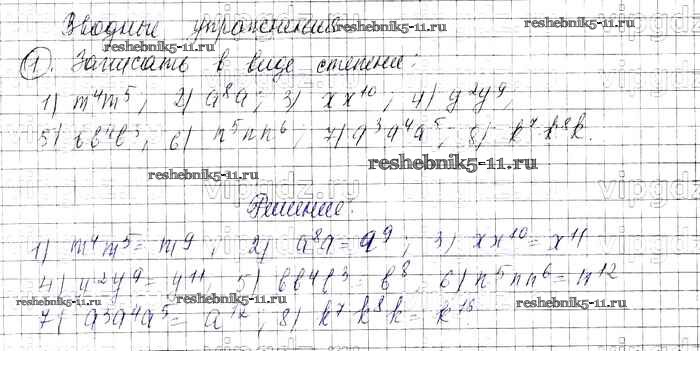 Вводные упражнения
reshebnik5-11.ru reshebnik5-11.ru
1. Записать в виде степени:
1) m⁴m⁵; 2) a⁸a; 3) xx¹⁰; 4) y²y⁹;
5) bb⁴b³; 6) n⁵nn⁶; 7) a³a⁴a⁵; 8) k⁷k⁸k.
reshebnik5-11.ru
reshebnik5-11.ru
vipgdz.ru
Решение:
1) m⁴m⁵ = m⁹; 2) a⁸a = a⁹; 3) xx¹⁰ = x¹¹
4) y²y⁹ = y¹¹ 5) bb⁴b³ = b⁸, 6) n⁵nn⁶ = n¹²
reshebnik5-11.ru reshebnik5-11.ru reshebnik5-11.ru
7) a³a⁴a⁵ = a¹², 8) k⁷k⁸k = k¹⁶